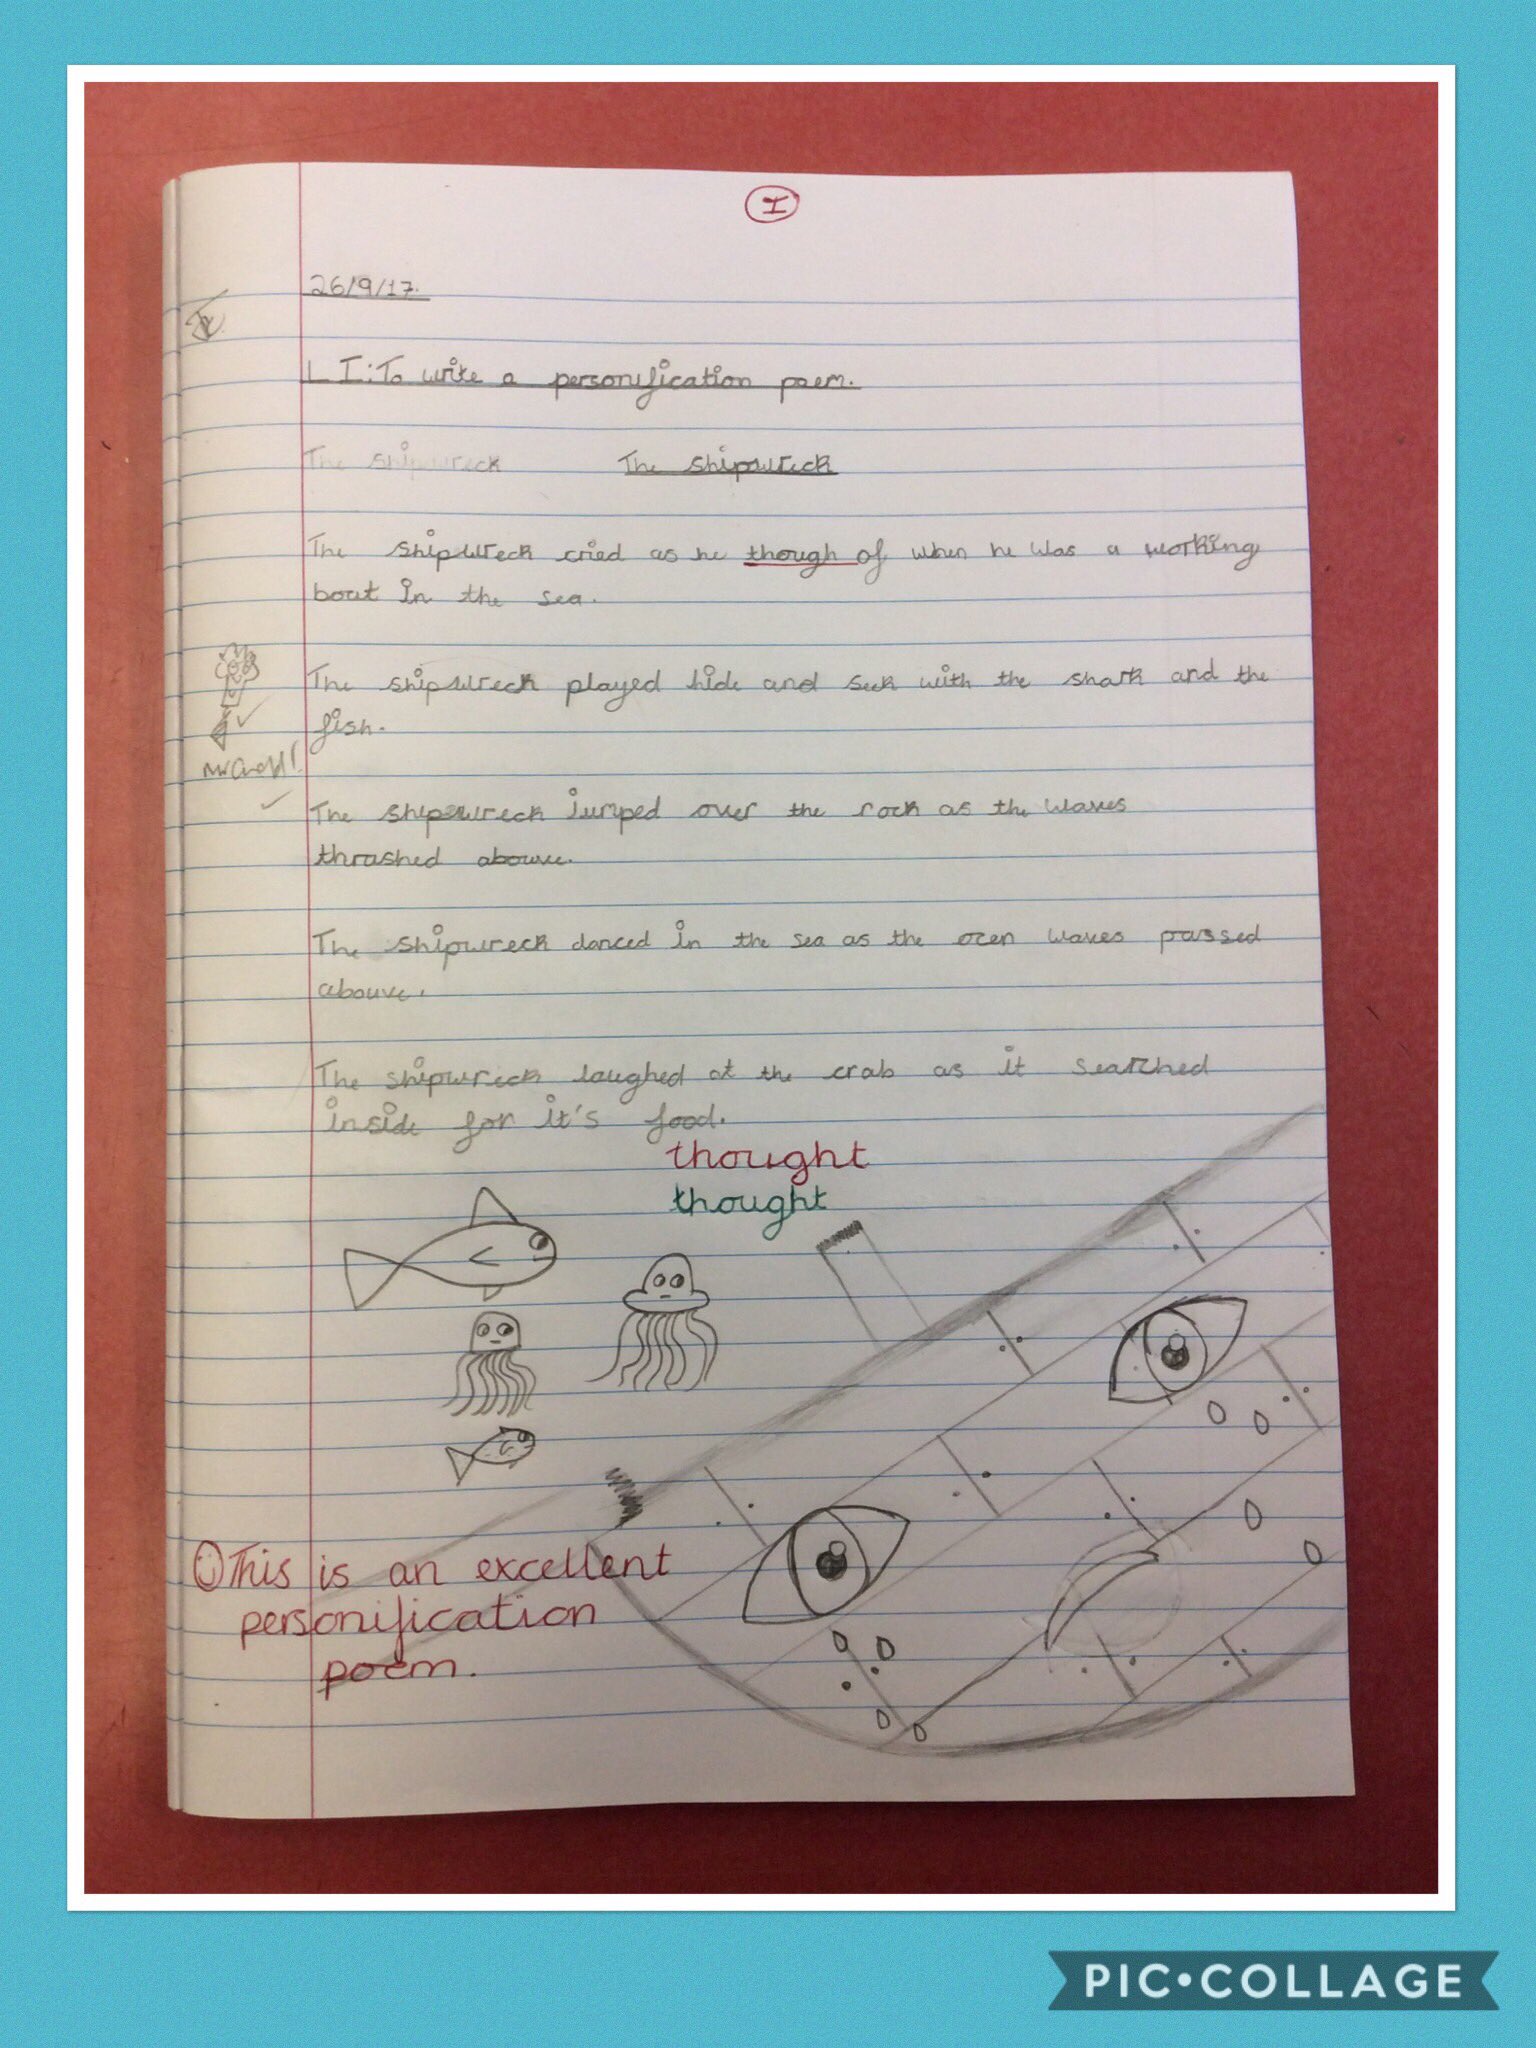 I
26/9/17.
LI: To write a personification poem.
The shipwreck The shipwreck
The shipwreck cried as he though of when he was a working
boat in the sea.
The shipwreck played hide and seek with the shark and the
fish.
The shipwreck jumped over the rock as the waves
thrashed abouve.
The shipwreck danced in the sea as the ocen waves passed
abouve.
The shipwreck laughed at the crab as it searched
inside for it's food.
thought
thought
This is an excellent
personification
poem.
PIC•COLLAGE